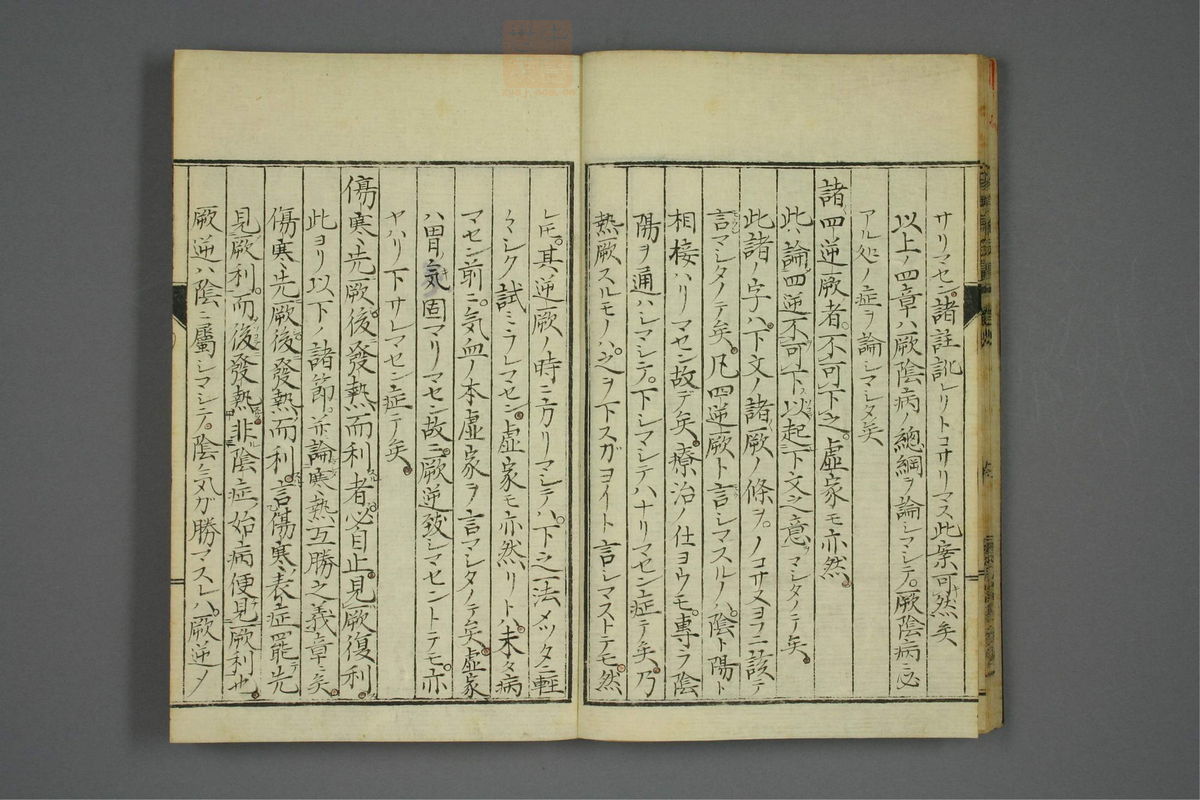 サリマセン。諸註訛レリトコサリマス此案可然矣
以上ノ四章ハ厥陰病ノ總綱ヲ論シマシテ。厥陰病ニ必
アル処ノ症ヲ論シマシタ矣
諸四逆厥者。不可下之。虛家モ亦然。
此ハ論四逆不可下。以起下文之意マシタノテ矣
此諸ノ字ハ。下文ノ諸厥ノ條ヲ。ノコサヌヨフニ該テ
言マシタノテ矣。凡四逆厥ト言レマスルノハ。陰ト陽ト
相接ハリマセン故デ矣。療治ノ仕ヨウモ。專ラ陰
陽ヲ通ハシマシテ。下シマシテハナリマセン症テ矣。乃
熱厥スルモノハ。之ヲ下スガヨイト言レマストテモ。然
レ𪜈。其逆厥ノ時ニ方リマシテハ。下之一法メツタニ輕
〱シク試ミラレマセン。虛家モ亦然リトハ。未タ病
マセン前ニ。気血ノ本虛家ヲ言マシタノテ矣。虛家
ハ胃ノ気固マリマセン故ニ。厥逆致シマセントテモ。亦
ヤハリ下サレマセン症テ矣。
傷寒先厥後發熱而利者。必自止。見厥復利。
此ヨリ以下ノ諸節。亦論寒熱互勝之義章ニ矣。
傷寒先厥後發熱而利。言傷寒表症罷テ先
見厥利。而後發熱。非陰症。始病便見厥利也。
厥逆ハ陰ニ屬シマシテ。陰気カ勝マスレハ。厥逆メ